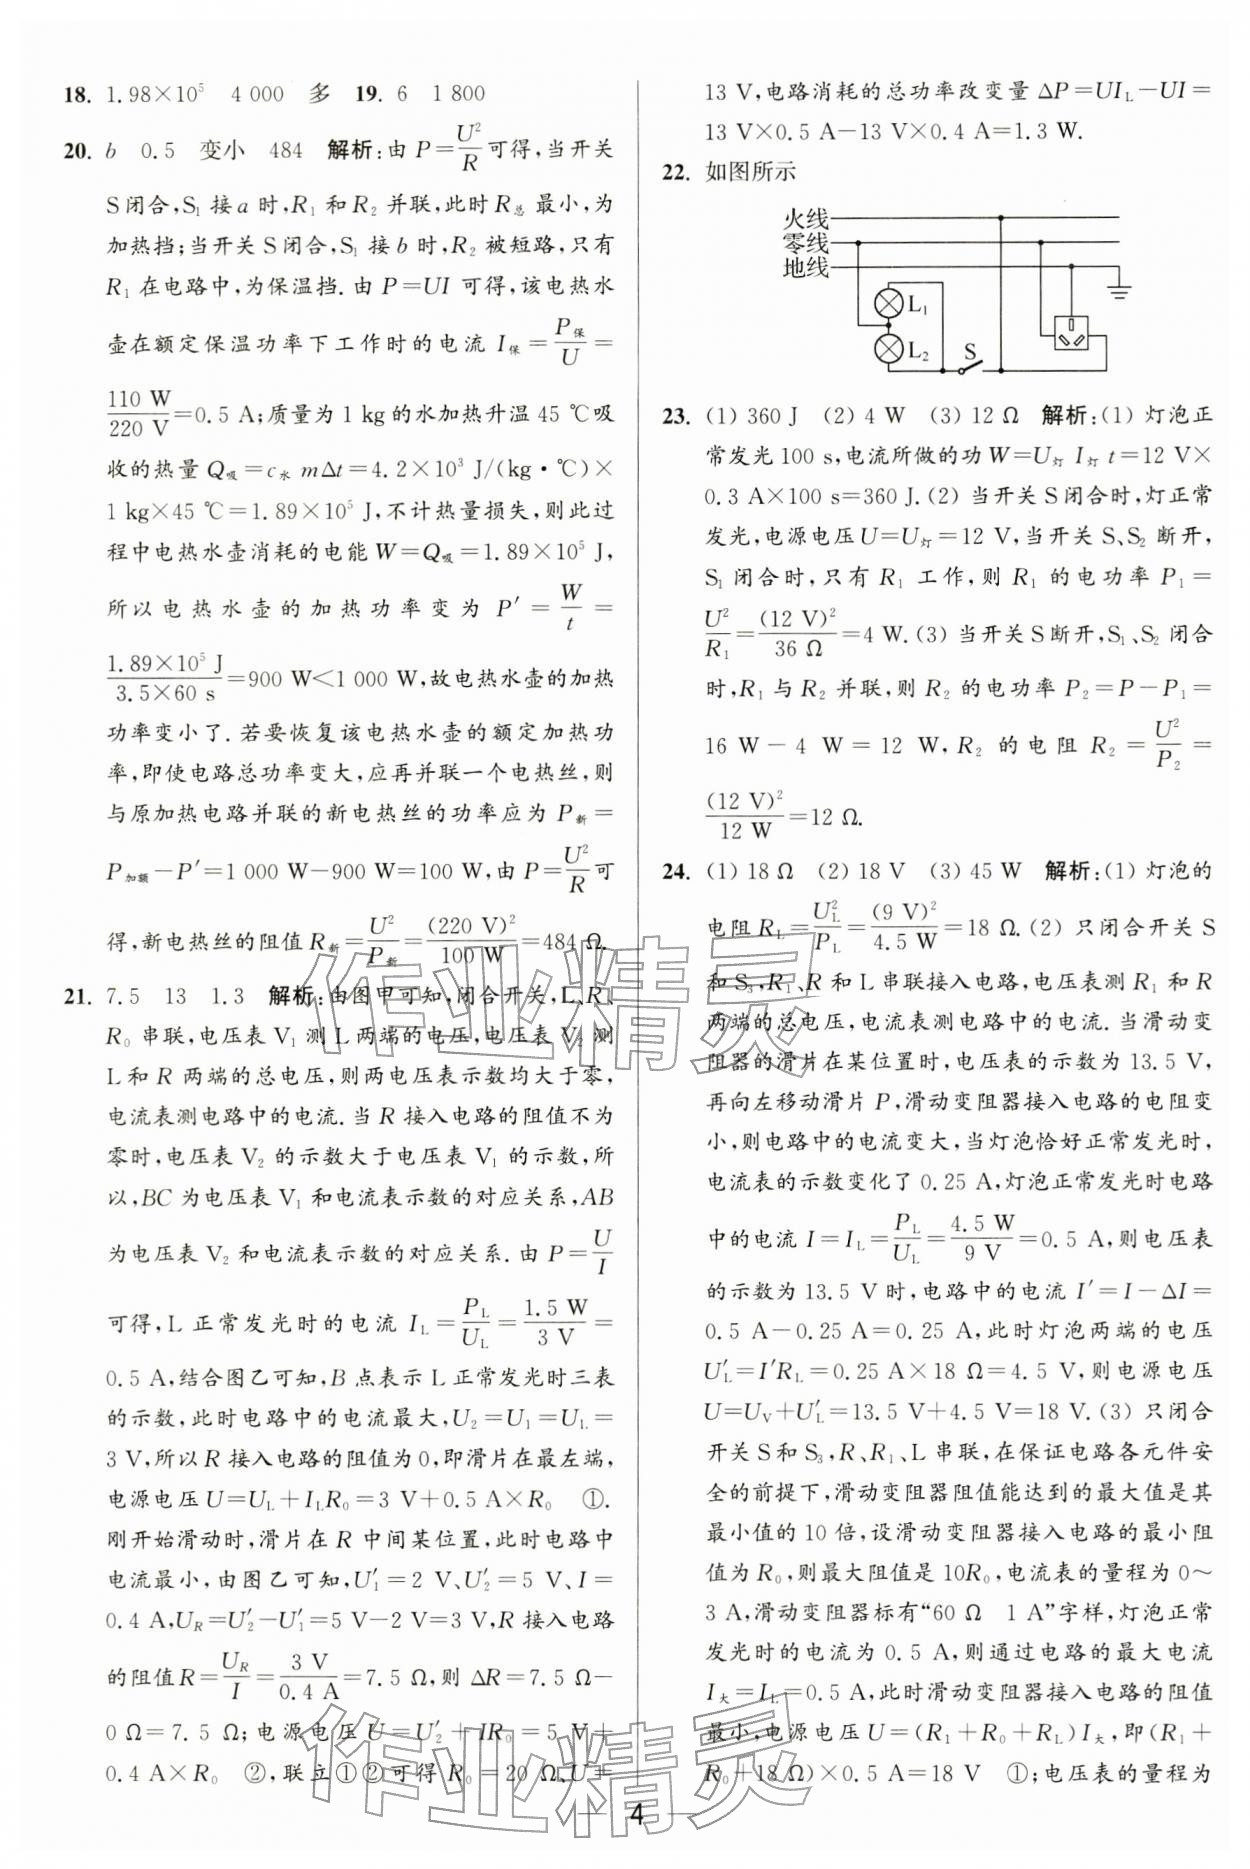 18. 1.98×10⁵ 4 000 多 19. 6 1 800
20. b 0.5 变小 484 解析:由 P=U²/R 可得,当开关
S闭合,S₁ 接a 时,R₁ 和 R₂ 并联,此时R总 最小,为
加热挡;当开关S闭合,S₁ 接 b 时,R₂ 被短路,只有
R₁ 在电路中,为保温挡. 由 P=UI 可得,该电热水
壶在额定保温功率下工作时的电流 I保=P保/U=
110 W/220 V=0.5 A;质量为 1 kg的水加热升温 45 ℃吸
收的热量 Q吸=c水 mΔt=4.2×10³ J/(kg·℃)×
1 kg×45 ℃=1.89×10⁵ J,不计热量损失,则此过
程中电热水壶消耗的电能 W=Q吸=1.89×10⁵ J,
所以电热水壶的加热功率变为 P′=W/t=
1.89×10⁵ J/3.5×60 s=900 W<1 000 W,故电热水壶的加热
功率变小了. 若要恢复该电热水壶的额定加热功
率,即使电路总功率变大,应再并联一个电热丝,则
与原加热电路并联的新电热丝的功率应为 P新=
P加额−P′=1 000 W−900 W=100 W,由 P=U²/R可
得,新电热丝的阻值R新=U²/P新=(220 V)²/100 W=484 Ω.
21. 7.5 13 1.3 解析:由图甲可知,闭合开关,L、R、
R₀ 串联,电压表 V₁ 测 L 两端的电压,电压表 V₂ 测
L和 R 两端的总电压,则两电压表示数均大于零,
电流表测电路中的电流. 当 R 接入电路的阻值不为
零时,电压表 V₂ 的示数大于电压表 V₁ 的示数,所
以,BC 为电压表 V₁ 和电流表示数的对应关系,AB
为电压表 V₂ 和电流表示数的对应关系. 由 P=U/I
可得,L 正常发光时的电流 I_L=P_L/U_L=1.5 W/3 V=
0.5 A,结合图乙可知,B 点表示 L正常发光时三表
的示数,此时电路中的电流最大,U₂=U₁=U_L=
3 V,所以 R 接入电路的阻值为0,即滑片在最左端,
电源电压 U=U_L+I_LR₀=3 V+0.5 A×R₀ ①.
刚开始滑动时,滑片在 R 中间某位置,此时电路中
电流最小,由图乙可知,U′₁=2 V、U′₂=5 V、I=
0.4 A,U_R=U′₂−U′₁=5 V−2 V=3 V,R 接入电路
的阻值R=U_R/I=3 V/0.4 A=7.5 Ω,则 ΔR=7.5 Ω−
0 Ω=7.5 Ω;电源电压 U=U′₂+IR₀=5 V+
0.4 A×R₀ ②,联立①②可得 R₀=20 Ω、U=
13 V,电路消耗的总功率改变量 ΔP=UI_L−UI=
13 V×0.5 A−13 V×0.4 A=1.3 W.
22. 如图所示
火线
零线
地线
L₁
L₂
S
23. (1) 360 J (2) 4 W (3) 12 Ω 解析:(1) 灯泡正
常发光100 s,电流所做的功 W=U灯 I灯 t=12 V×
0.3 A×100 s=360 J.(2) 当开关S闭合时,灯正常
发光,电源电压U=U灯=12 V,当开关 S、S₂ 断开,
S₁ 闭合时,只有 R₁ 工作,则 R₁ 的电功率 P₁=
U²/R₁=(12 V)²/36 Ω=4 W.(3) 当开关S断开,S₁、S₂ 闭合
时,R₁ 与 R₂ 并联,则 R₂ 的电功率 P₂=P−P₁=
16 W−4 W=12 W,R₂ 的电阻 R₂=U²/P₂=
(12 V)²/12 W=12 Ω.
24. (1) 18 Ω (2) 18 V (3) 45 W 解析:(1) 灯泡的
电阻 R_L=U_L²/P_L=(9 V)²/4.5 W=18 Ω.(2) 只闭合开关 S
和S₃,R₁、R 和 L 串联接入电路,电压表测 R₁ 和R
两端的总电压,电流表测电路中的电流. 当滑动变
阻器的滑片在某位置时,电压表的示数为 13.5 V,
再向左移动滑片 P,滑动变阻器接入电路的电阻变
小,则电路中的电流变大,当灯泡恰好正常发光时,
电流表的示数变化了 0.25 A,灯泡正常发光时电路
中的电流 I=I_L=P_L/U_L=4.5 W/9 V=0.5 A,则电压表
的示数为13.5 V时,电路中的电流 I′=I−ΔI=
0.5 A−0.25 A=0.25 A,此时灯泡两端的电压
U′_L=I′R_L=0.25 A×18 Ω=4.5 V,则电源电压
U=U_V+U′_L=13.5 V+4.5 V=18 V.(3) 只闭合
开关 S和S₃,R、R₁、L 串联,在保证电路各元件安
全的前提下,滑动变阻器阻值能达到的最大值是其
最小值的 10 倍,设滑动变阻器接入电路的最小阻
值为R₀,则最大阻值是10R₀,电流表的量程为 0~
3 A,滑动变阻器标有“60 Ω 1 A”字样,灯泡正常
发光时的电流为 0.5 A,则通过电路的最大电流
I大=I_L=0.5 A,此时滑动变阻器接入电路的阻值
最小,电源电压U=(R₁+R₀+R_L)I大,即(R₁+
R₀+18 Ω)×0.5 A=18 V ①;电压表的量程为
作业精灵
作业精灵
4